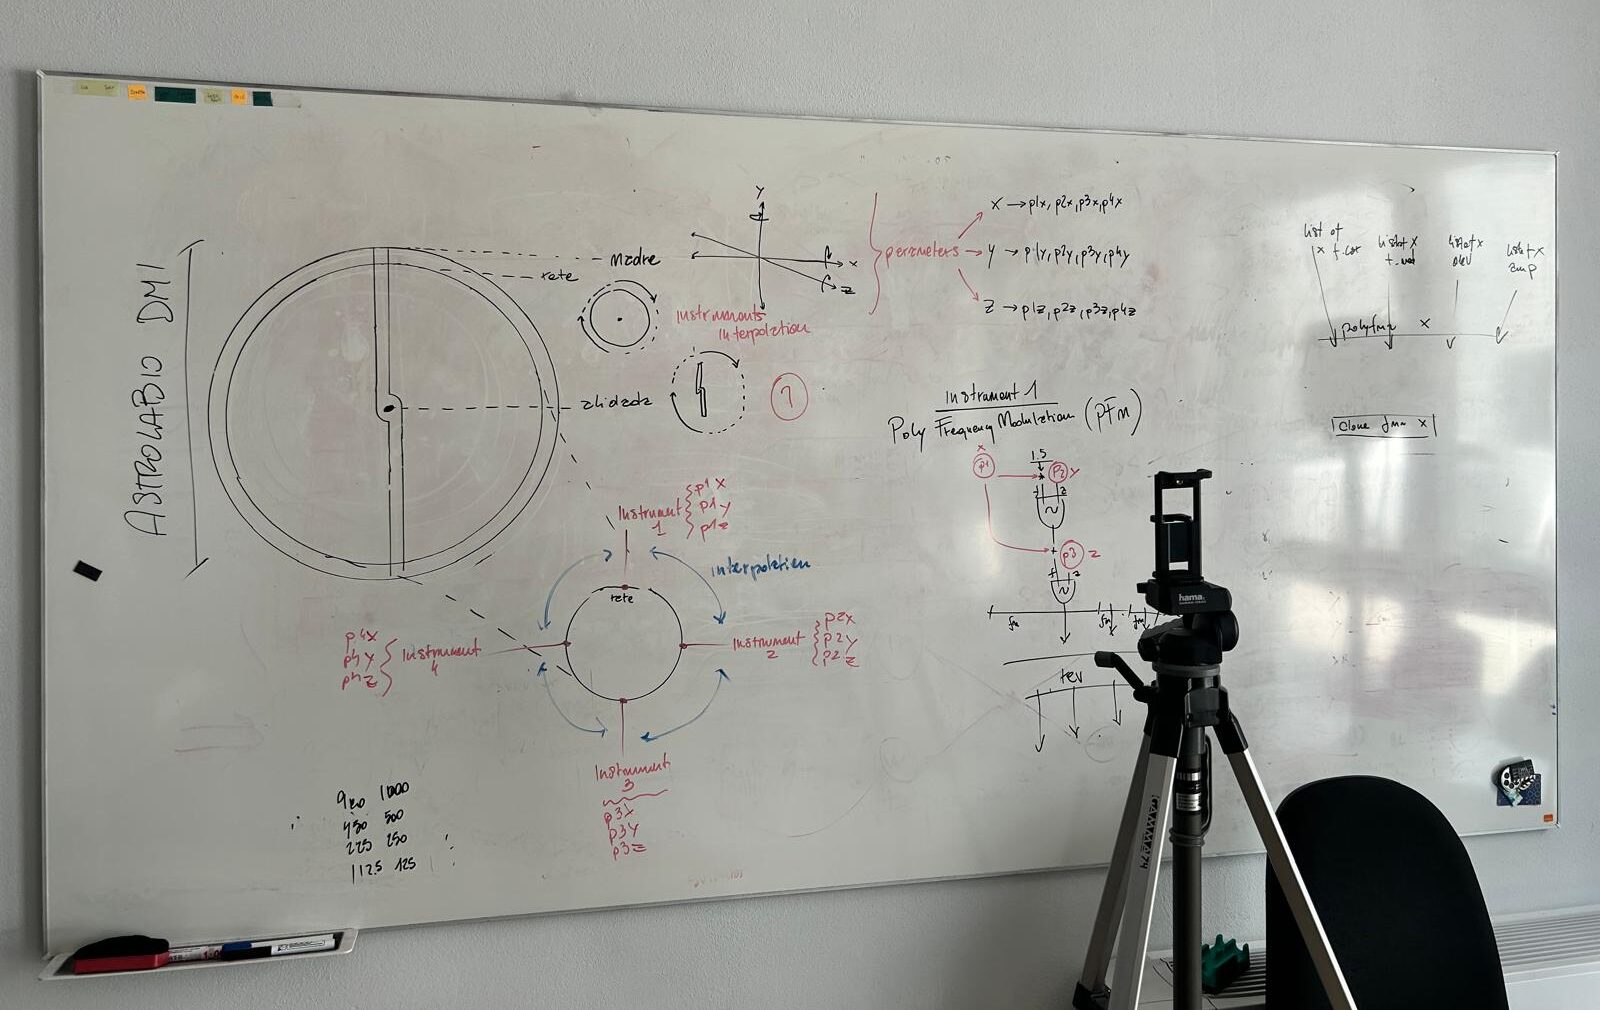 ASTROLABIO DMI
madre
rete
alidada
Instruments
interpolation
?
Y
X
Z
parameters
X → p1x, p2x, p3x, p4x
Y → p1y, p2y, p3y, p4y
Z → p1z, p2z, p3z, p4z
Instrument 1
Poly Frequency Modulation (PFM)
x
p1
1.5
P2 y
2
~
+
p3 z
~
fm
fm
fm
rev
list of
x f.car
list of x
list of x
dev
list of x
amp
polyfm x
clone fm x
Instrument
1
p1 x
p1 y
p1 z
interpolation
rete
Instrument
2
p2x
p2y
p2z
Instrument
3
p3x
p3y
p3z
p4x
p4y
p4z
Instrument
4
900 1000
450 500
225 250
112.5 125
hama.
HAMA